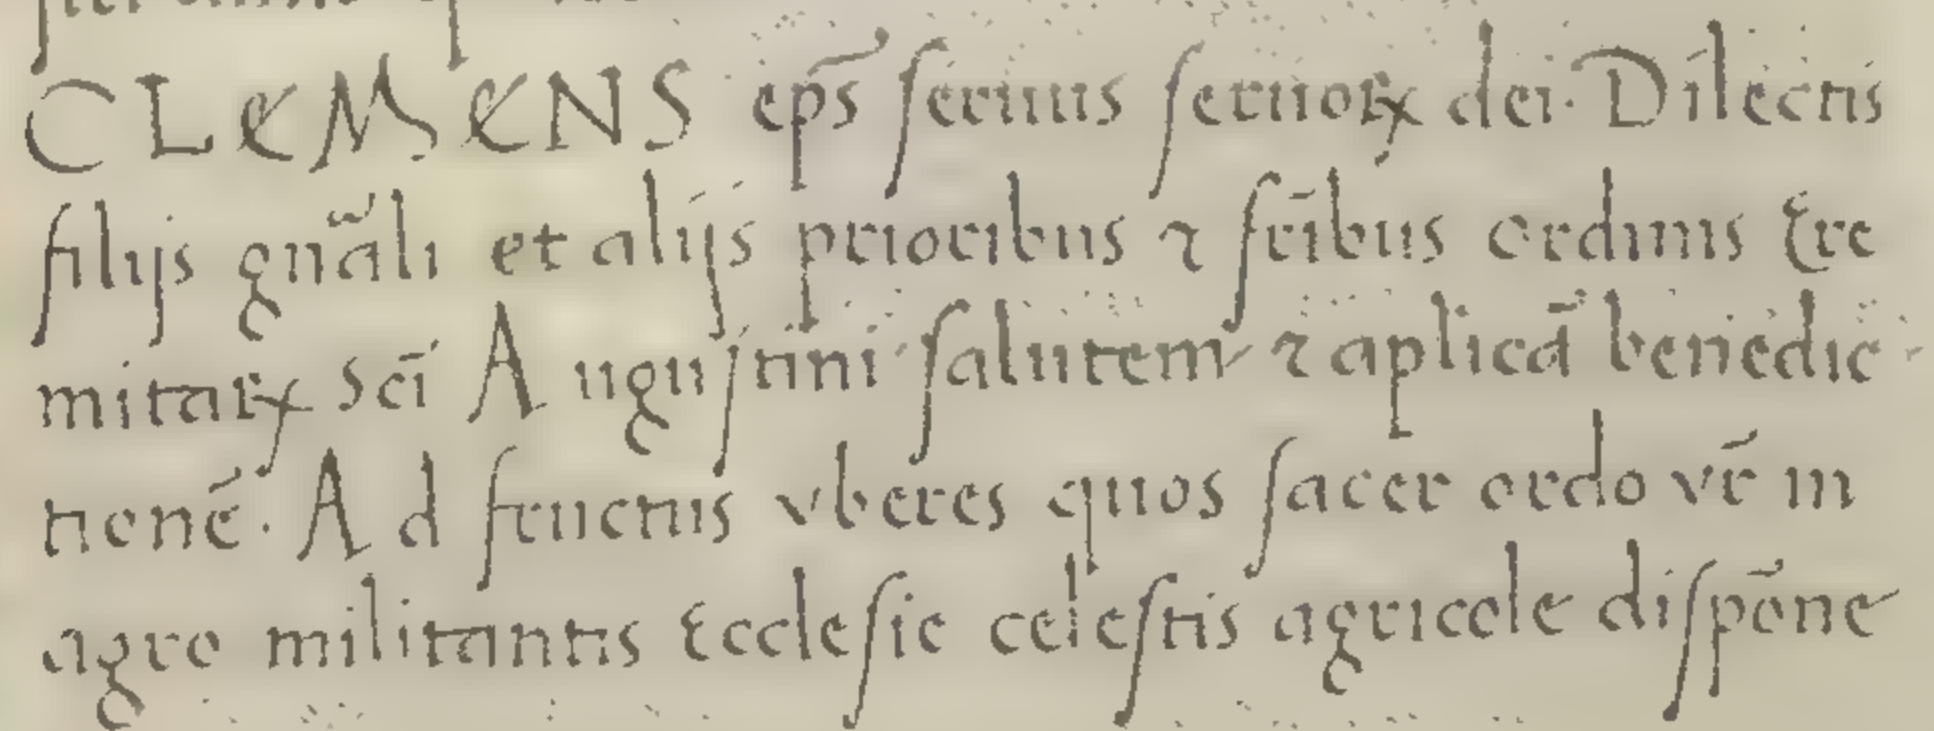 CLEMENS ep̄s ſeruus ſeruoꝝ dei. Dilectis
filijs gn̄ali et alijs prioribus ⁊ fr̄ibus ordinis Ere
mitaꝝ Sc̄i Auguſtini ſalutem ⁊ aplicā benedic
tionē. Ad fructus vberes quos ſacer ordo vr̄ in
agro militantis Eccleſie celeſtis agricole diſpōne